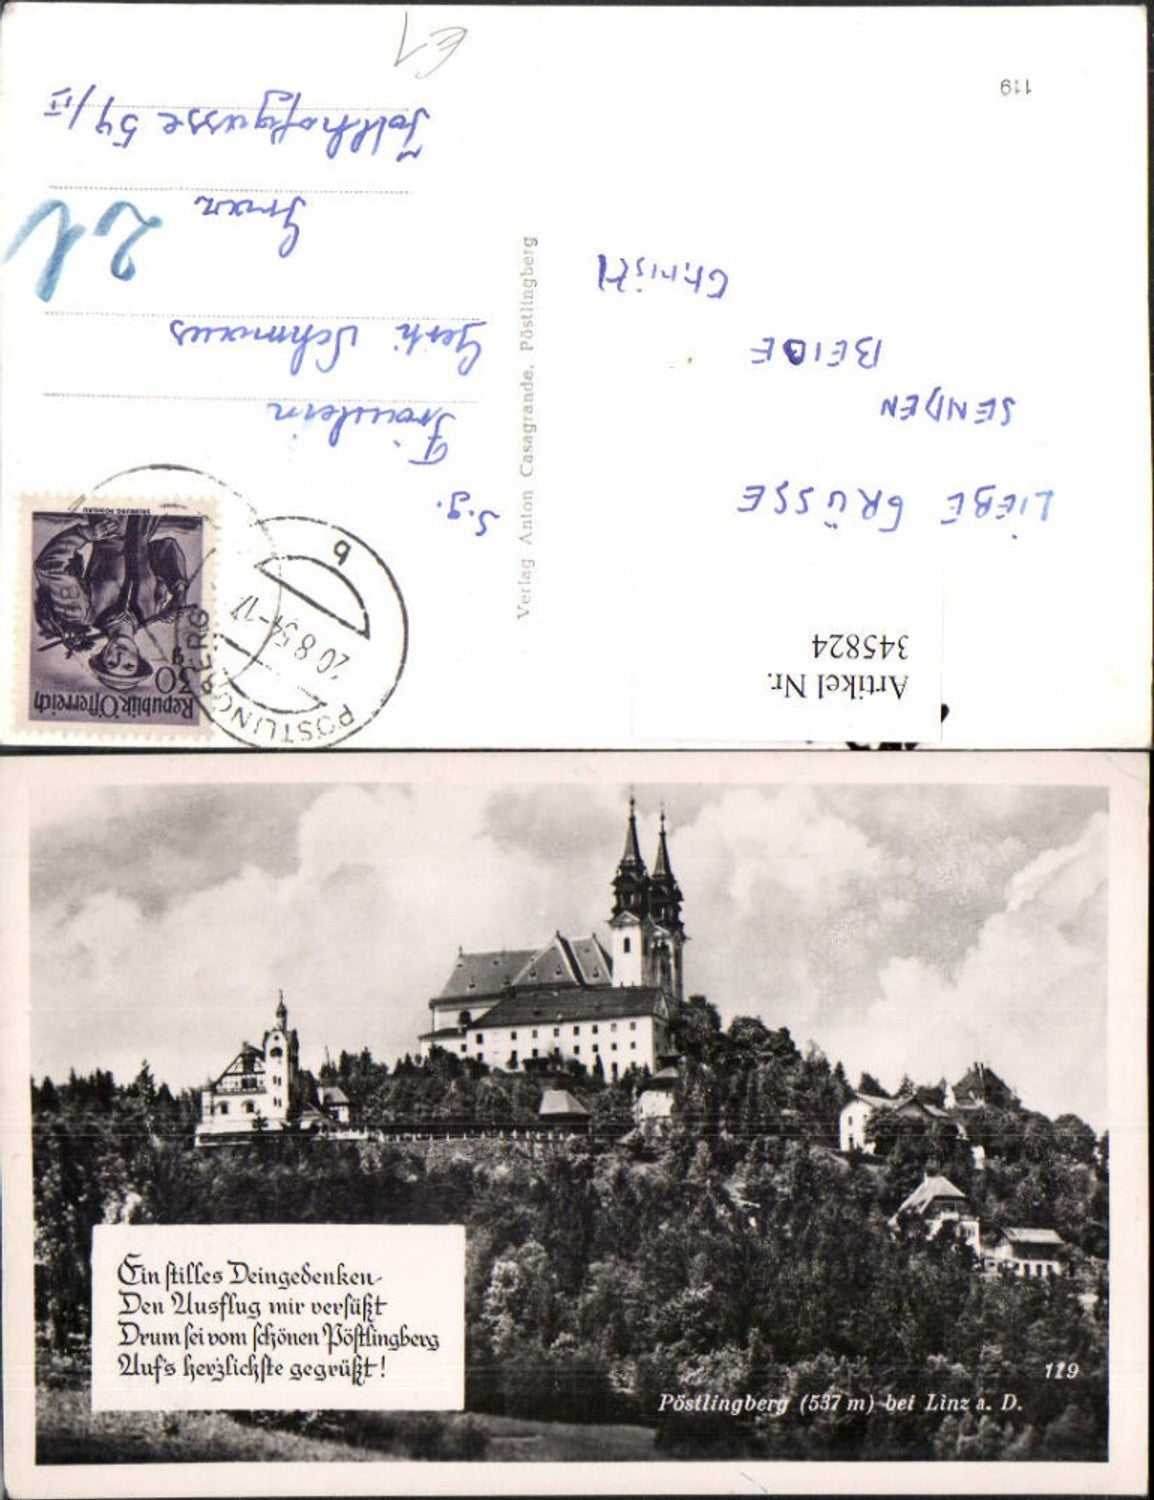 Artikel Nr.
345824
LIEBE GRÜSSE
SENDEN
BEIDE
Christl
119
Verlag Anton Casagrande, Pöstlingberg
Republik Österreich
30 g
SALZBURG PONGAU
PÖSTLINGBERG
20.8.54-17
b
S.g.
Fräulein
Gerti Schmaus
Graz
54/II
€1
Ein stilles Deingedenken
Den Ausflug mir versüßt
Drum sei vom schönen Pöstlingberg
Auf's herzlichste gegrüßt!
119
Pöstlingberg (537 m) bei Linz a. D.